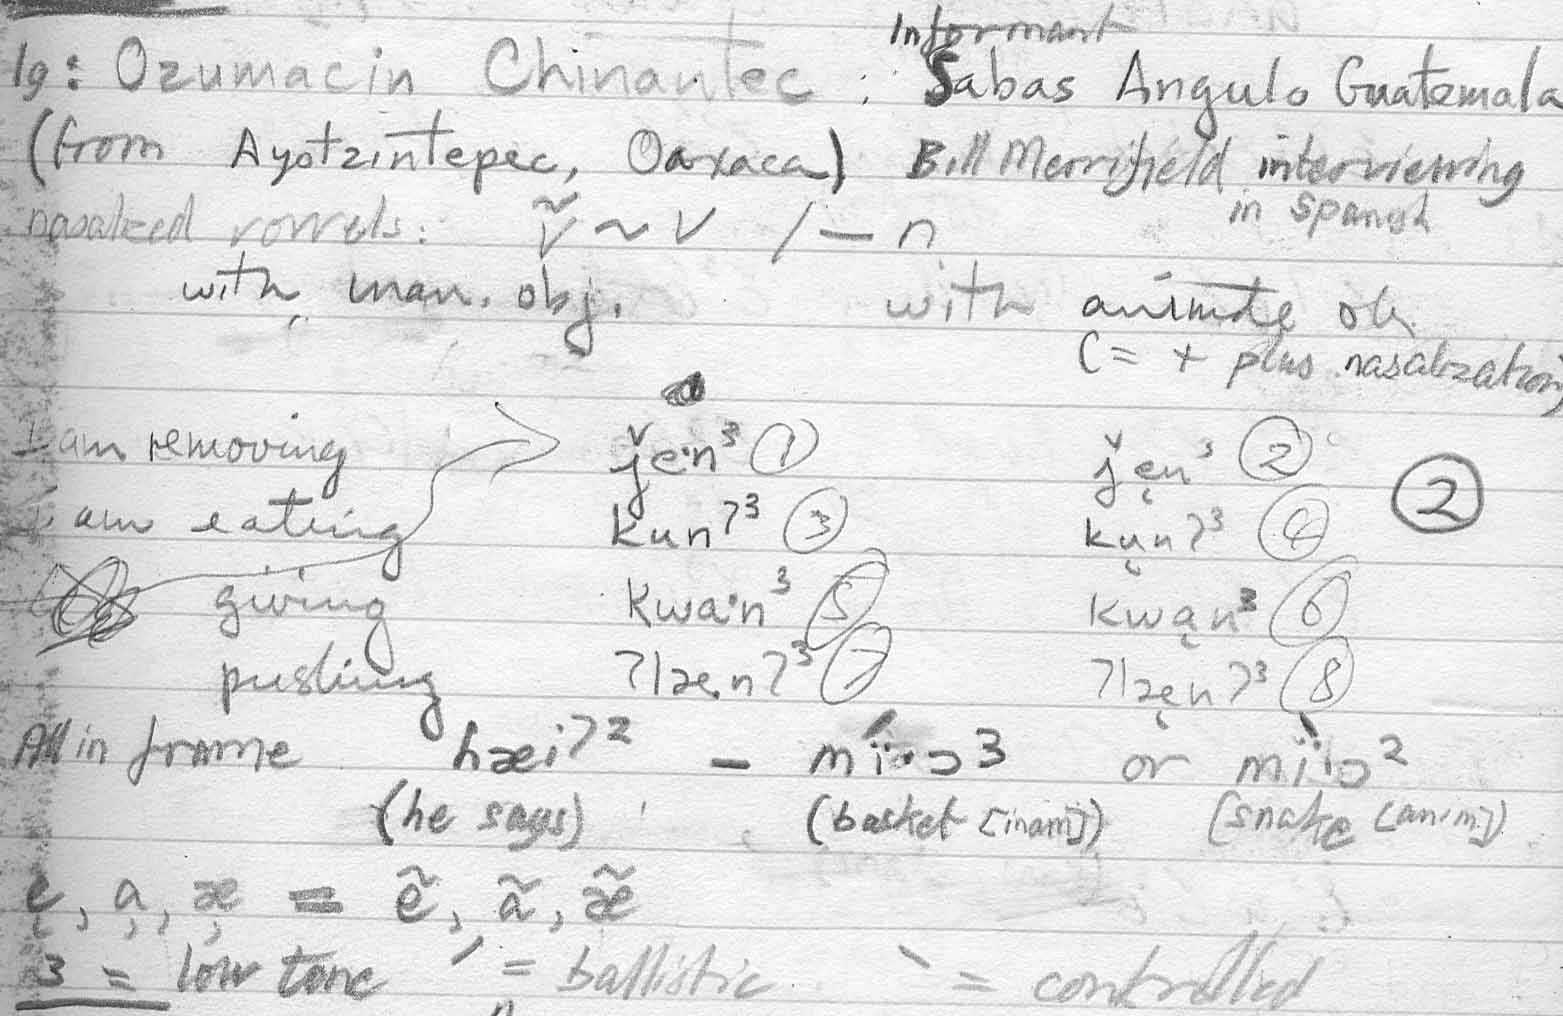 Informant
lg: Ozumacin Chinantec : Sabas Angulo Guatemala
(from Ayotzintepec, Oaxaca) Bill Merrifield interviewing
in Spanish
nasalized vowels: Ṽ ~ V / — n
with inan. obj. with animate ob.
(= + plus nasalization)
I am removing ǰe·n³ ① ǰę·n³ ② ②
I am eating kunʔ³ ③ kųnʔ³ ④
giving kwa·n³ ⑤ kwąn³ ⑥
pushing ʔlæ.nʔ³ ⑦ ʔlæ̨nʔ³ ⑧
All in frame hæiʔ² – mï·ɔ³ or mï·ɔ²
(he says) (basket [inam]) (snake [anim])
ę, ą, æ̨ = ẽ, ã, æ̃
3 = low tone ´ = ballistic ` = controlled